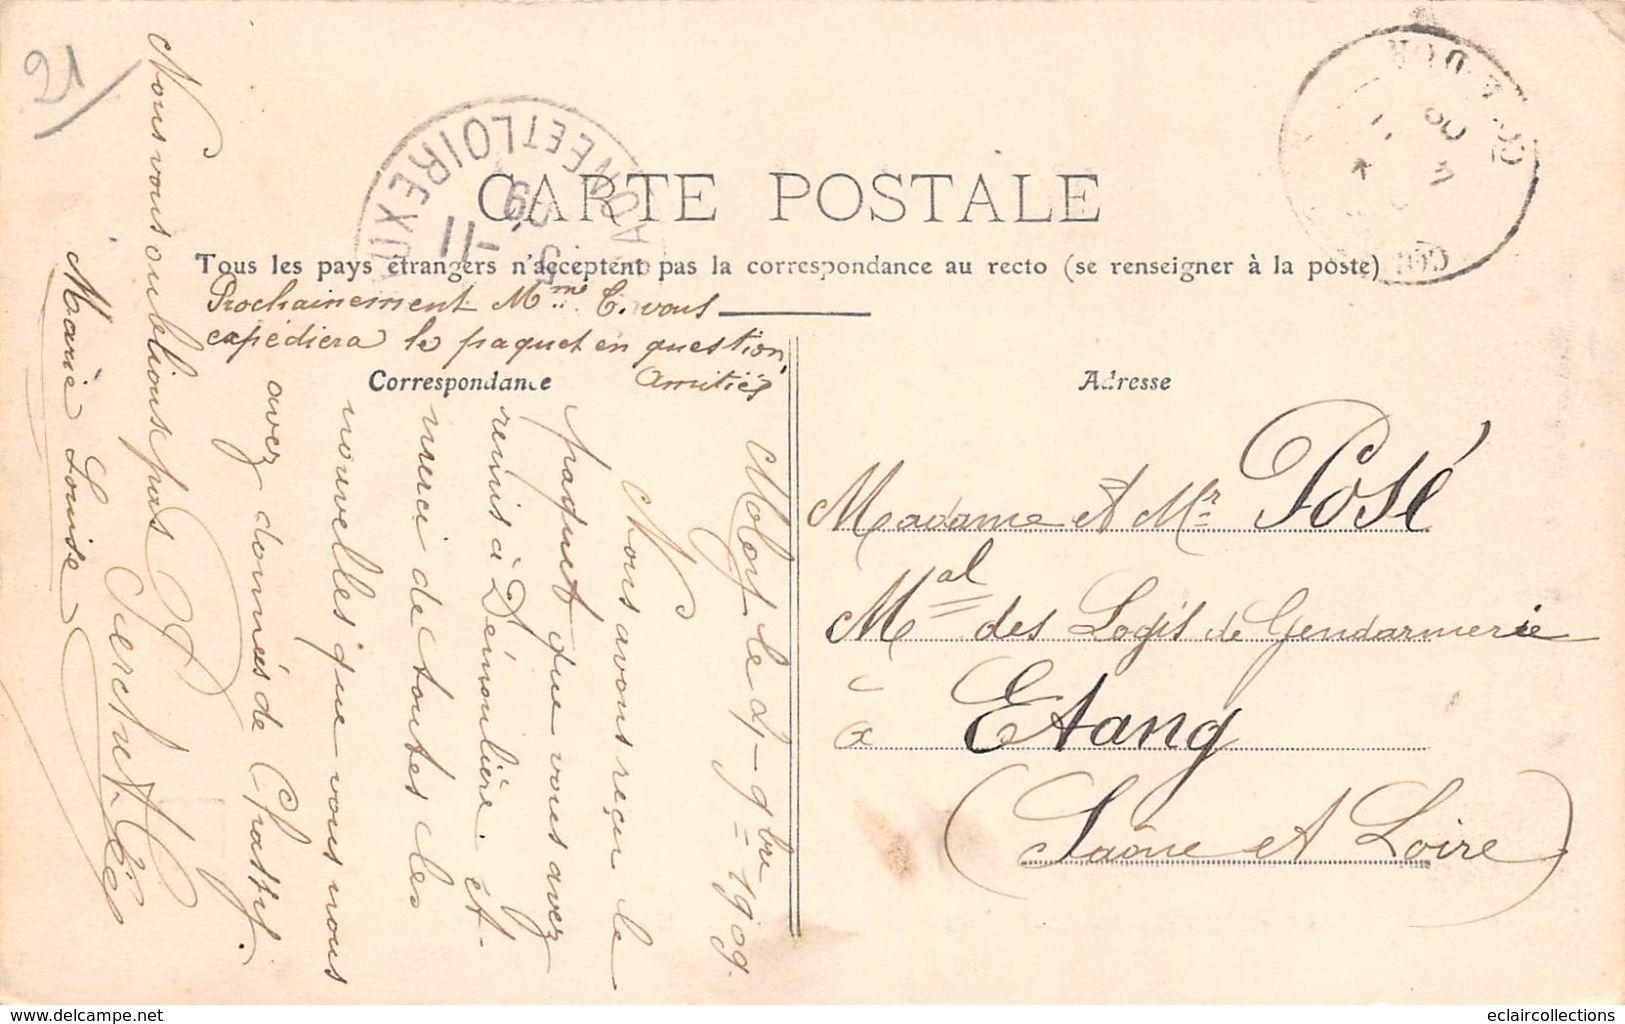 21
CARTE POSTALE
Tous les pays étrangers n'acceptent pas la correspondance au recto (se renseigner à la poste)
Prochainement Mme C. vous
expédiera le paquet en question,
Amitiés
Correspondance
Adresse
le 4 - 9bre 1909.
Nous avons reçu le
paquet que vous avez
remis à Démoulière et
merci de toutes les
nouvelles que vous nous
avez données de Chassy.
Nous vous oublions pas
Marie Louise
Madame et Mr Posé
Mal des Logis de Gendarmerie
à Etang
(Saône et Loire)
SAONE ET LOIRE
11
09
COTE-D'OR
09
eclaircollections